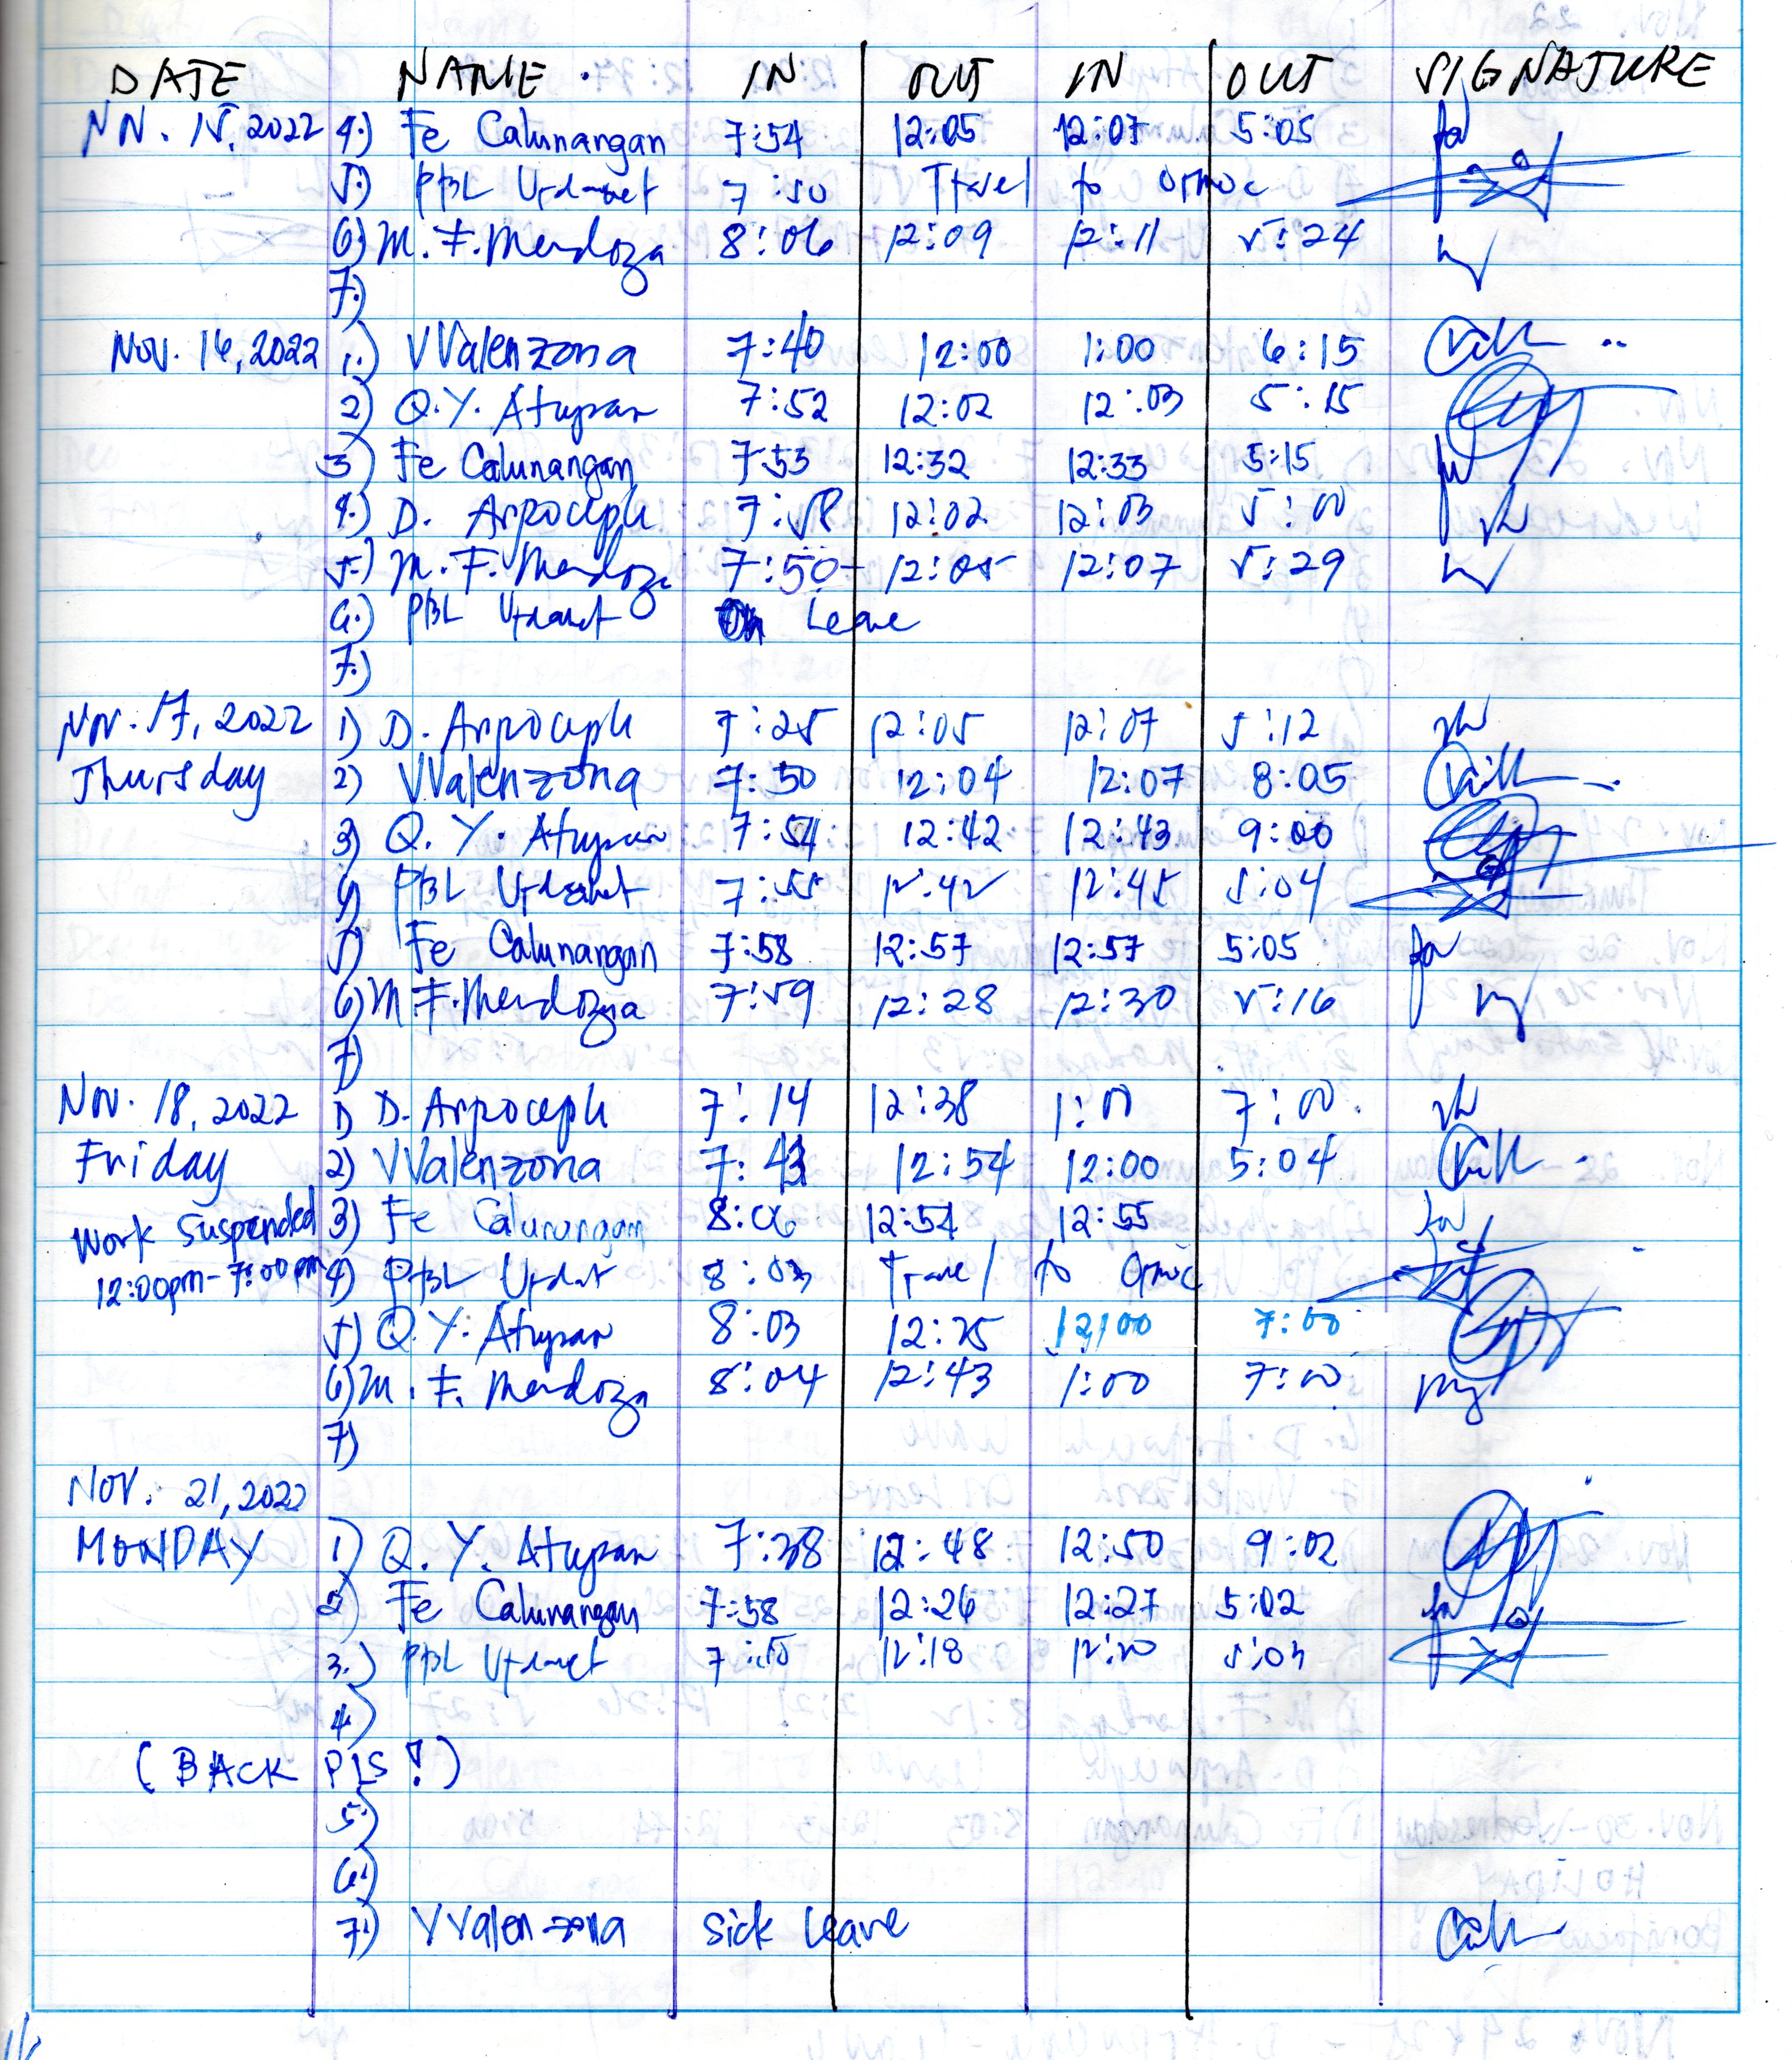 DATE NAME IN OUT IN OUT SIGNATURE
Nov. 15, 2022 4.) Fe Calunangan 7:54 12:05 12:07 5:05
5.) PBL 7:50 Travel to Ormoc
6) M. F. Mendoza 8:06 12:09 12:11 5:24
7.)
Nov. 16, 2022 1.) VValenzona 7:40 12:00 1:00 6:15
2) Q. Y. Atupan 7:52 12:02 12:03 5:15
3) Fe Calunangan 7:53 12:32 12:33 5:15
4.) D. Arpoceph 7:58 12:02 12:03 5:00
5.) M. F. Mendoza 7:50 12:05 12:07 5:29
6.) PBL On Leave
7.)
Nov. 17, 2022 1) D. Arpoceph 7:25 12:05 12:07 5:12
Thursday 2) VValenzona 7:50 12:04 12:07 8:05
3) Q. Y. Atupan 7:54 12:42 12:43 9:00
4) PBL 7:55 12:42 12:45 5:04
5) Fe Calunangan 7:58 12:57 12:57 5:05
6) M. F. Mendoza 7:59 12:28 12:30 5:16
7)
Nov. 18, 2022 1) D. Arpoceph 7:14 12:38 1:00 7:00
Friday 2) VValenzona 7:43 12:54 12:00 5:04
Work Suspended 3) Fe Calunangan 8:06 12:54 12:55
12:00pm - 7:00pm 4) PBL 8:03 Travel to Ormoc
5) Q. Y. Atupan 8:03 12:25 12:00 7:00
6) M. F. Mendoza 8:04 12:43 1:00 7:00
7)
Nov. 21, 2022
MONDAY 1) Q. Y. Atupan 7:38 12:48 12:50 9:02
2) Fe Calunangan 7:58 12:26 12:27 5:02
3.) PBL 7:50 12:18 12:20 5:03
4)
(BACK PLS!)
5)
6.)
7.) VValenzona Sick Leave